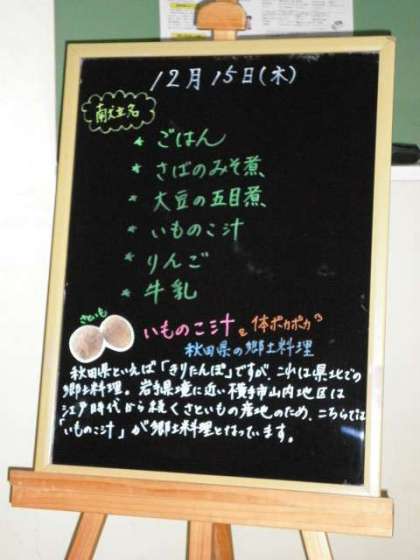 12月15日(木)
献立名
* ごはん
* さばのみそ煮
* 大豆の五目煮
* いものこ汁
* りんご
* 牛乳
さといも
いものこ汁で体ポカポカ
秋田県の郷土料理
秋田県といえば「きりたんぽ」ですが、これは県北での
郷土料理。岩手県境に近い横手市山内地区は
江戸時代から続くさといもの産地のため、こちらでは
「いものこ汁」が郷土料理となっています。